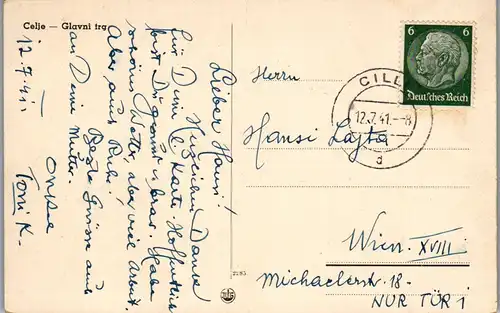 Celje — Glavni trg
12.7.41.
Lieber Hansi!
Herzlichen Dank
für Deine l. Karte. Hoffentlich
bist Du gesund u. brav. Habe
schönes Wetter, aber viel Arbeit.
Aber auch Ruhe!
Beste Grüsse auch
an Deine Mutter.
Onkel
Toni K.
6 6
Deutsches Reich
CILLI
12.7.41.–8
d
Herrn
Hansi Lajta
Wien XVIII
Michaelerstr. 18-
NUR TÜR 1